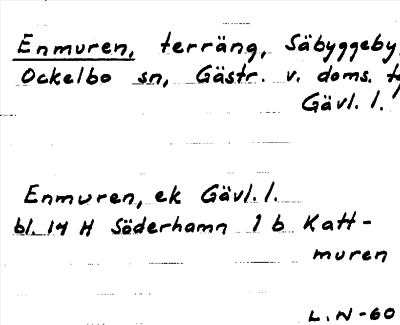 Enmuren, terräng, Säbyggeby
Ockelbo sn, Gästr. v. doms.
Gävl. l.
Enmuren, ek Gävl. l.
bl. 14 H Söderhamn 1 b Katt-
muren
L.N-60